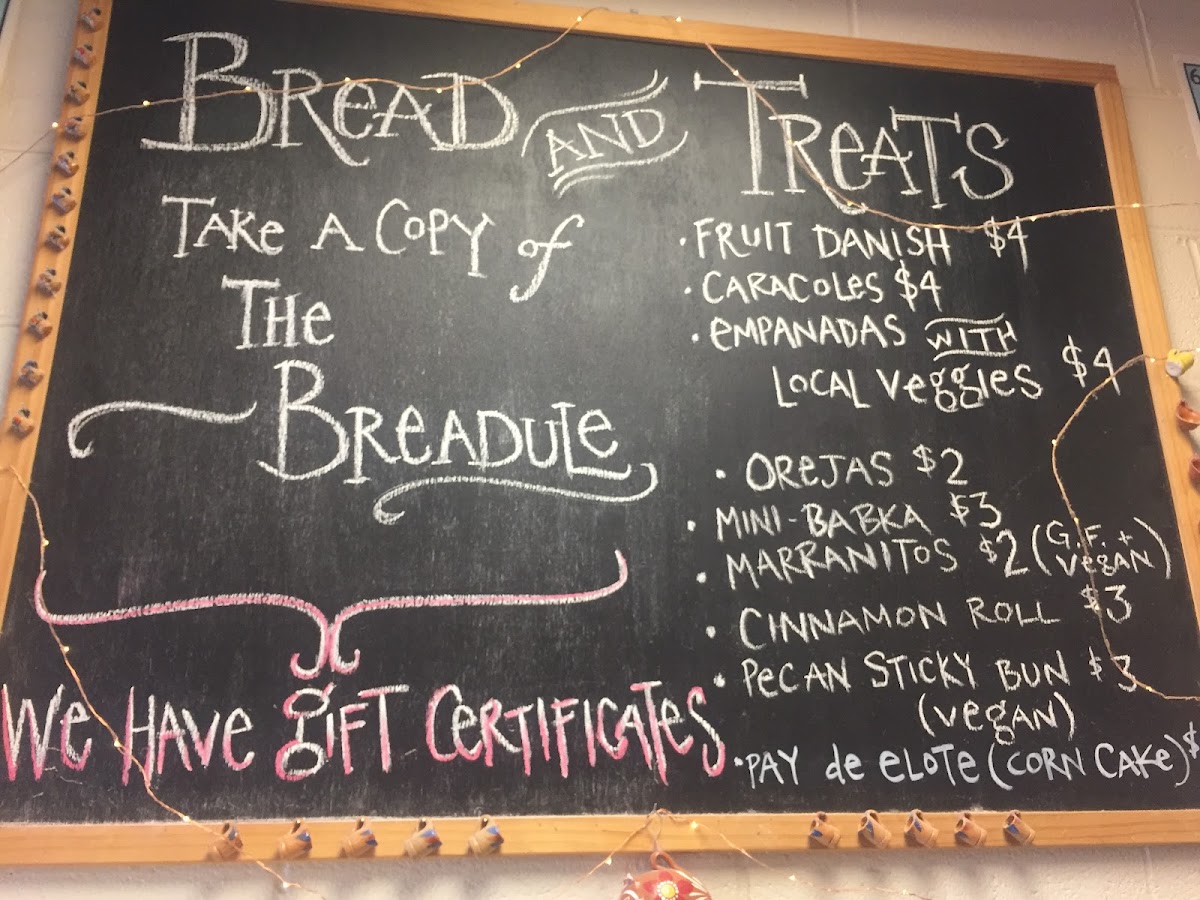 BREAD AND TREATS
TAKE A COPY of
THE
BREADULE
WE HAVE gIFT CERTIFICATES
• FRUIT DANISH $4
• CARACOLES $4
• EMPANADAS WITH
LOCAL VEggIES $4
• OREJAS $2
• MINI-BABKA $3
• MARRANITOS $2 (G.F. +
VEgAN)
• CINNAMON ROLL $3
• PECAN STICKY BUN $3
(VEgAN)
• PAY de ELOTE (CORN CAKE) $